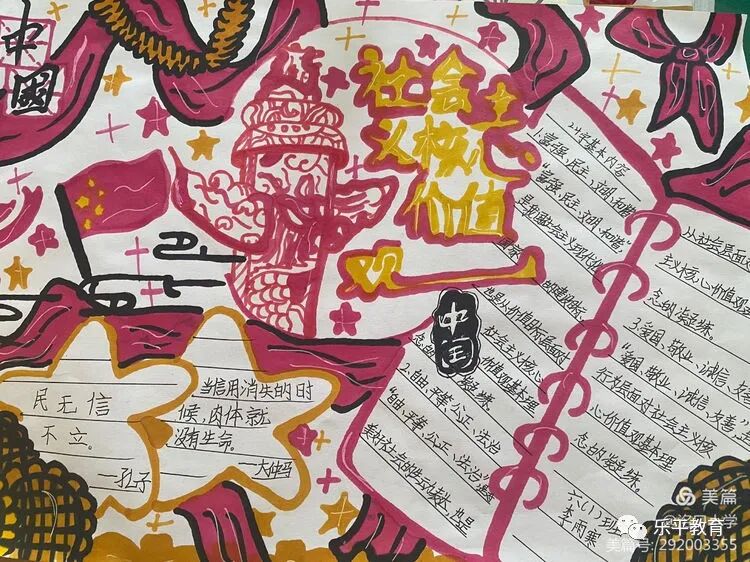 中国
社会主
义核心
价值
观
中国
民无信
不立。
——孔子
当信用消失的时
候,肉体就
没有生命。
——大仲马
24字基本内容
1.富强、民主、文明、和谐
"富强、民主、文明、和谐"
是我国社会主义现代化
国家
的建设目标
也是从价值目标层面对
社会主义核心
价值观基本理
念的凝练。
2.自由、平等、公正、法治
"自由、平等、公正、法治"
从社会层面对
主义核心价值观
念的凝练。
3.爱国、敬业、诚信、友善
"爱国、敬业、诚信、友善"
行为层面对社会主义核
心价值观基本理
念的凝练。
六(1)班
李雨
美篇
乐平教育
美篇号: 292003355